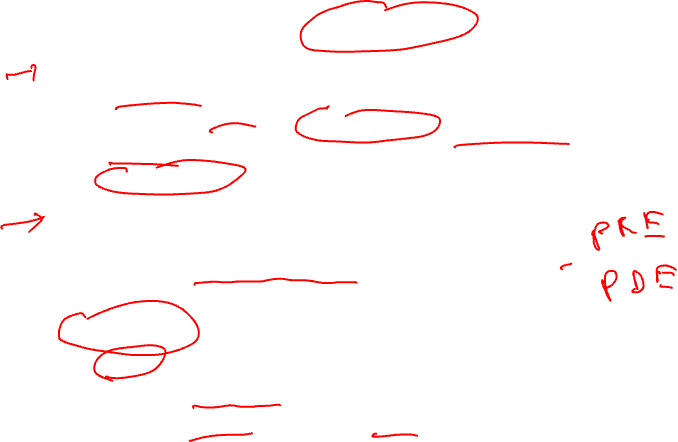 PRE
PDE